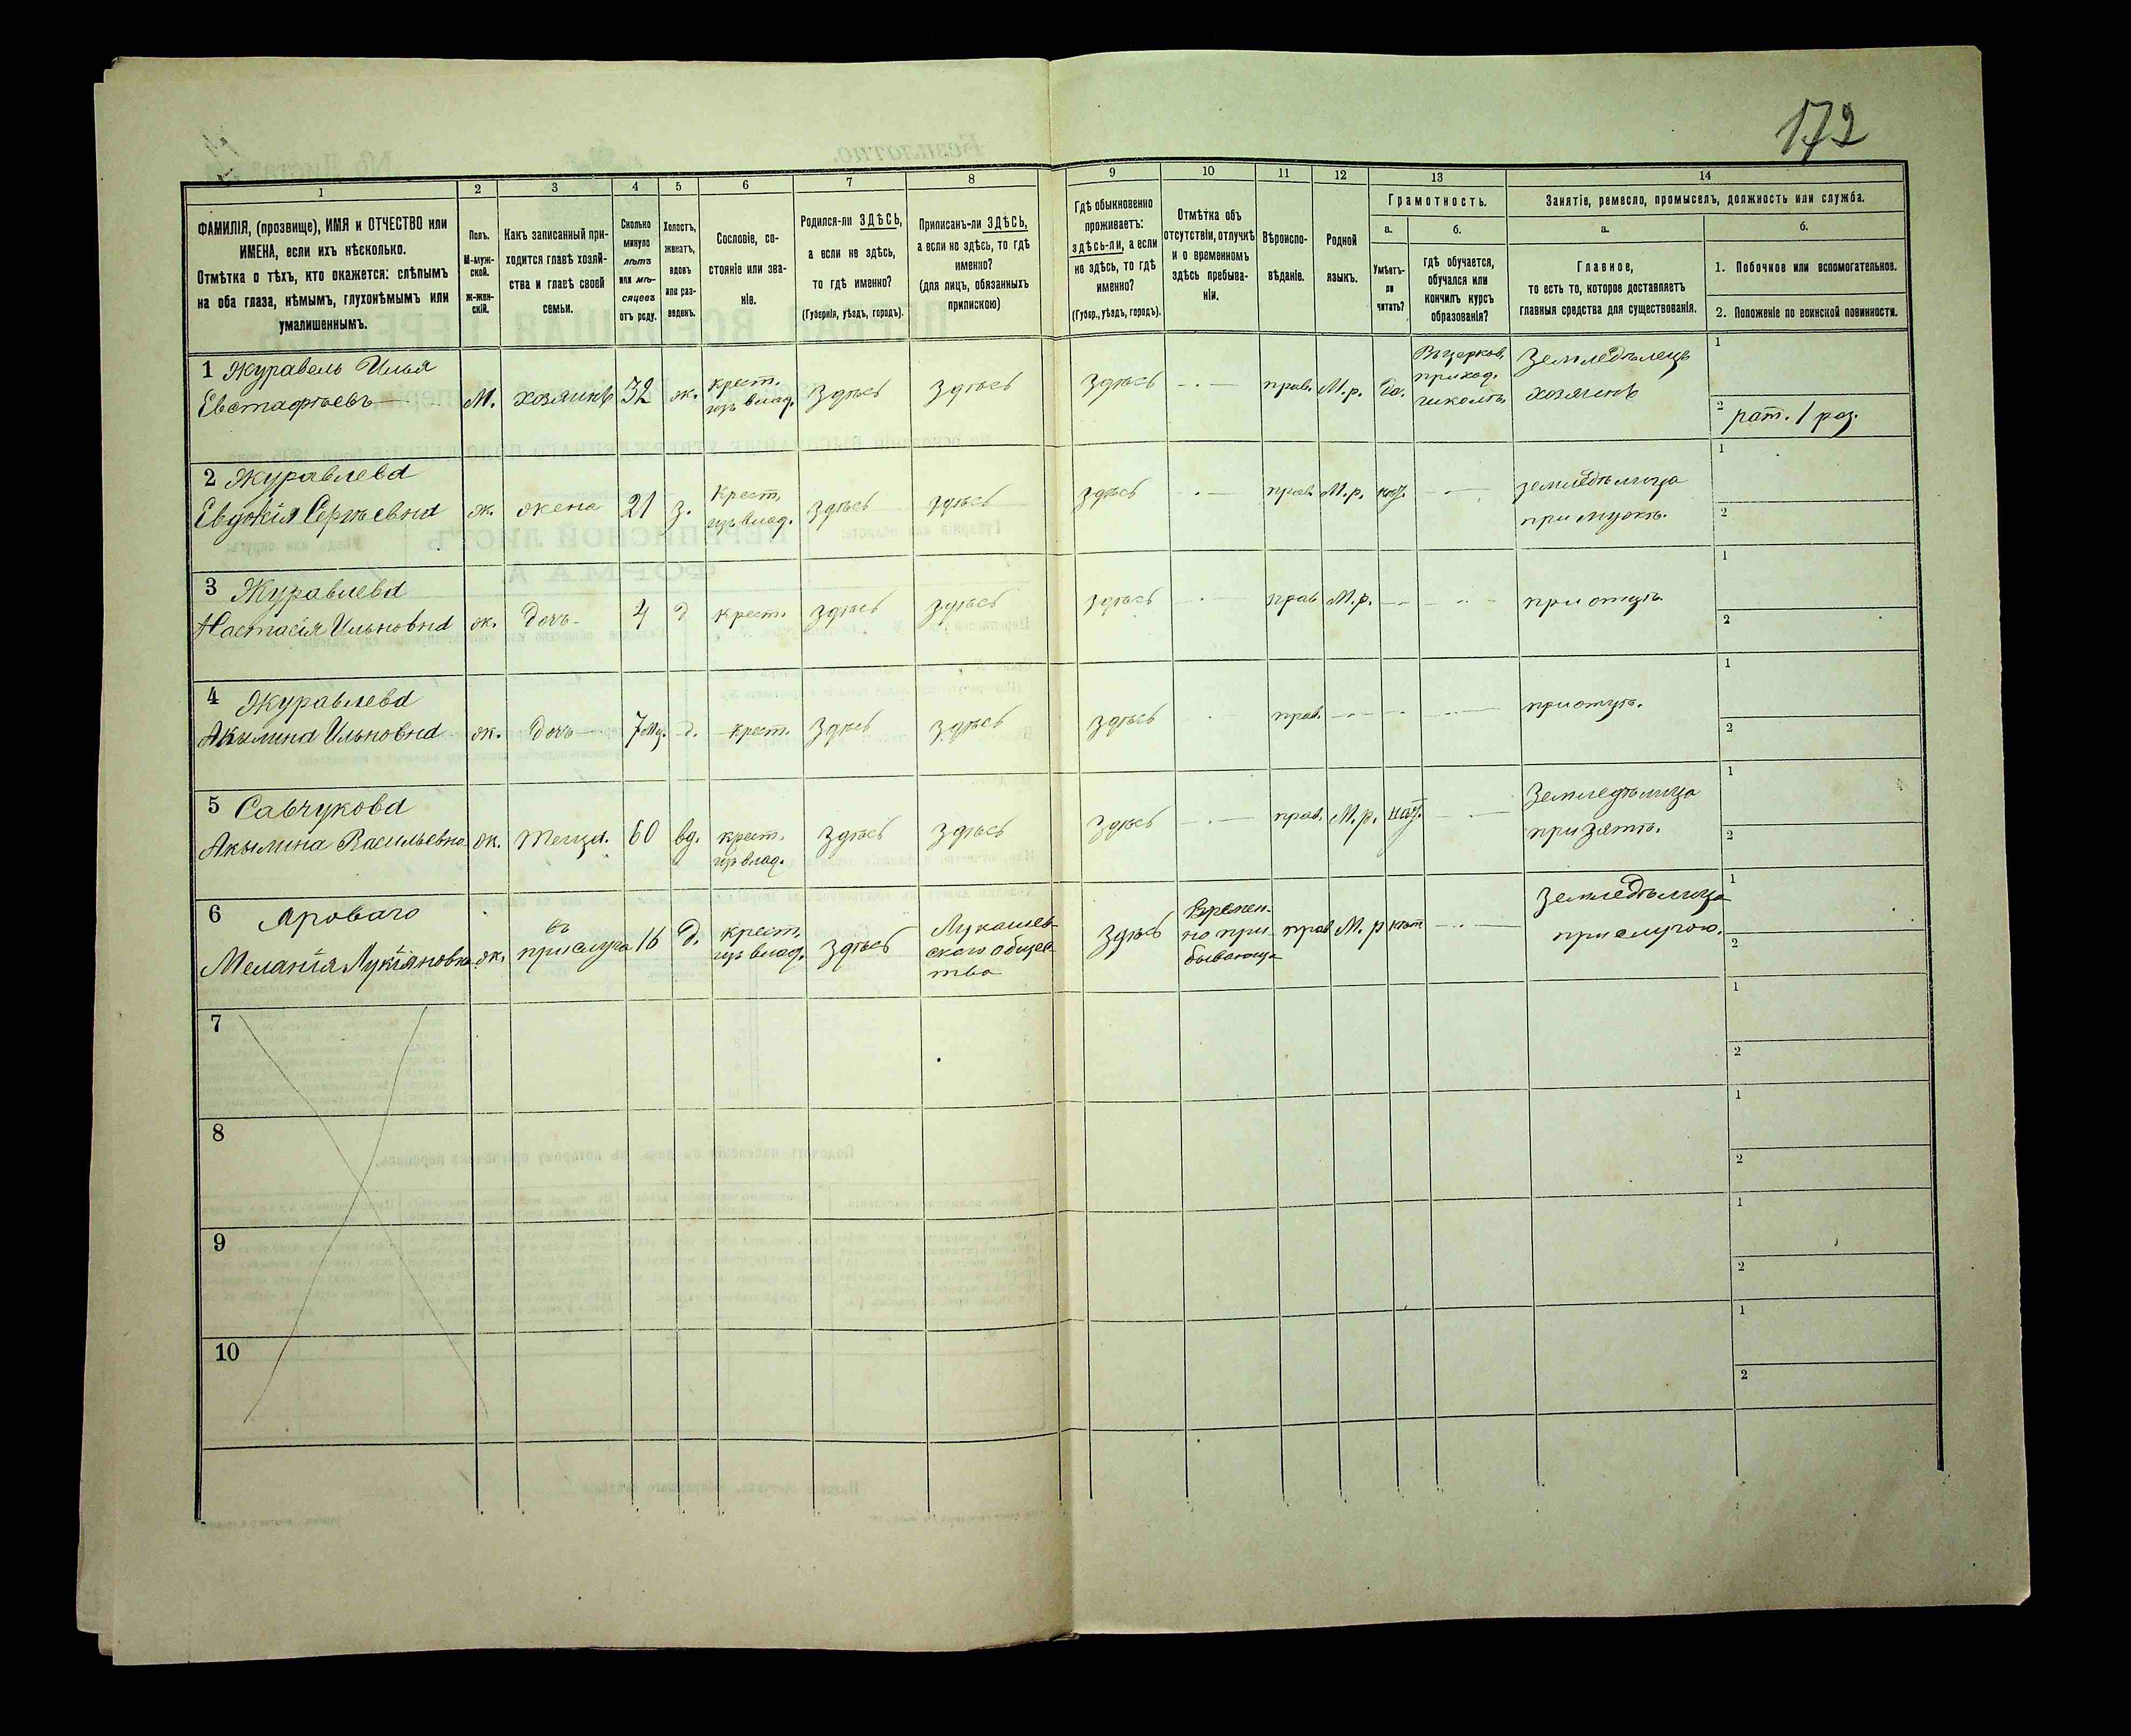 172
1 2 3 4 5 6 7 8 9 10 11 12 13 14
ФАМИЛІЯ, (прозвище), ИМЯ и ОТЧЕСТВО или
ИМЕНА, если ихъ нѣсколько.
Отмѣтка о тѣхъ, кто окажется: слѣпымъ
на оба глаза, нѣмымъ, глухонѣмымъ или
умалишеннымъ.
Полъ.
М-муж-
ской.
Ж-жен-
скій.
Какъ записанный при-
ходится главѣ хозяй-
ства и главѣ своей
семьи.
Сколько
минуло
лѣтъ
или мѣ-
сяцевъ
отъ роду.
Холостъ,
женатъ,
вдовъ
или раз-
веденъ.
Сословіе, со-
стояніе или зва-
ніе.
Родился-ли ЗДѢСЬ,
а если не здѣсь,
то гдѣ именно?
(Губернія, уѣздъ, городъ).
Приписанъ-ли ЗДѢСЬ,
а если не здѣсь, то гдѣ
именно?
(для лицъ, обязанныхъ
припискою)
Гдѣ обыкновенно
проживаетъ:
здѣсь-ли, а если
не здѣсь, то гдѣ
именно?
(Губер., уѣздъ, городъ).
Отмѣтка объ
отсутствіи, отлучкѣ
и о временномъ
здѣсь пребыва-
ніи.
Вѣроиспо-
вѣданіе.
Родной
языкъ.
Грамотность.
а.
Умѣетъ-
ли
читать?
б.
гдѣ обучается,
обучался или
кончилъ курсъ
образованія?
Занятіе, ремесло, промыселъ, должность или служба.
а.
Главное,
то есть то, которое доставляетъ
главныя средства для существованія.
б.
1. Побочное или вспомогательное.
2. Положеніе по воинской повинности.
1 Журавель Илья
Евстафіевъ
М. хозяинъ 32 ж.
крест.
изъ влад.
здѣсь здѣсь здѣсь — · — прав. М.р. да.
Въ церков.
приход.
школѣ
Земледѣлецъ
хозяинъ
1
2 рат. 1 раз.
2 Журавлева
Евдокія Сергѣевна
ж. жена 21 з.
Крест.
изъ влад.
здѣсь здѣсь здѣсь · — прав. М.р. нѣт. — · —
земледѣлица
при мужѣ.
1
2
3 Журавлева
Настасія Ильновна
ж. дочь 4 д крест. здѣсь здѣсь здѣсь — · — прав М.р. — — · · —
при отцѣ.
1
2
4 Журавлева
Акылина Ильновна
ж. дочь 7 мц. д. крест. здѣсь здѣсь здѣсь · прав. — · — — · —
при отцѣ.
1
2
5 Савчукова
Акылина Васильевна
ж. Теща. 60 вд.
крест.
изъ влад.
здѣсь здѣсь здѣсь — · — прав. М.р. нѣт. — · —
Земледѣлица
при зятѣ.
1
2
6 Яроваго
Меланія Лукіяновна
ж.
въ
прислуга
16 д.
крест.
изъ влад.
здѣсь
Лукашев-
скаго общес-
тва
здѣсь
Времен-
но при-
бывающ
прав М.р нѣт — · —
Земледѣлица
прислугою.
1
2
7
1
2
8
1
2
9
1
2
10
1
2